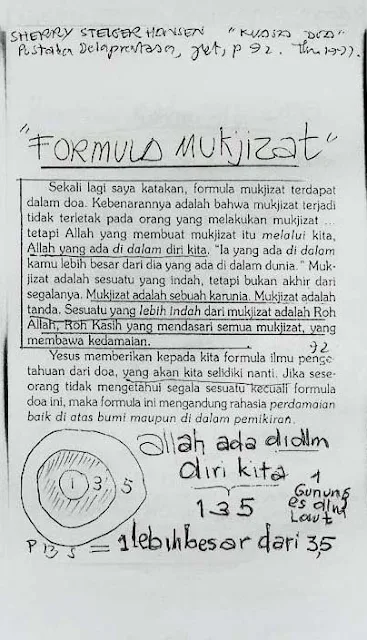 SHERRY STEIGER HANSEN "KUASA DOA"
Pustaka Delapratasa, Jkt, p 92. Thn 1999.
"FORMULA MUKJIZAT"
Sekali lagi saya katakan, formula mukjizat terdapat
dalam doa. Kebenarannya adalah bahwa mukjizat terjadi
tidak terletak pada orang yang melakukan mukjizat ...
tetapi Allah yang membuat mukjizat itu melalui kita,
Allah yang ada di dalam diri kita. "Ia yang ada di dalam
kamu lebih besar dari dia yang ada di dalam dunia." Muk-
jizat adalah sesuatu yang indah, tetapi bukan akhir dari
segalanya. Mukjizat adalah sebuah karunia. Mukjizat adalah
tanda. Sesuatu yang lebih indah dari mukjizat adalah Roh
Allah, Roh Kasih yang mendasari semua mukjizat, yang
membawa kedamaian.
92
Yesus memberikan kepada kita formula ilmu penge-
tahuan dari doa, yang akan kita selidiki nanti. Jika sese-
orang tidak mengetahui segala sesuatu kecuali formula
doa ini, maka formula ini mengandung rahasia perdamaian
baik di atas bumi maupun di dalam pemikiran.
allah ada didlm
diri kita
1 3 5
1 3 5
1
Gunung
es dlm
Laut
= 1 lebih besar dari 3,5